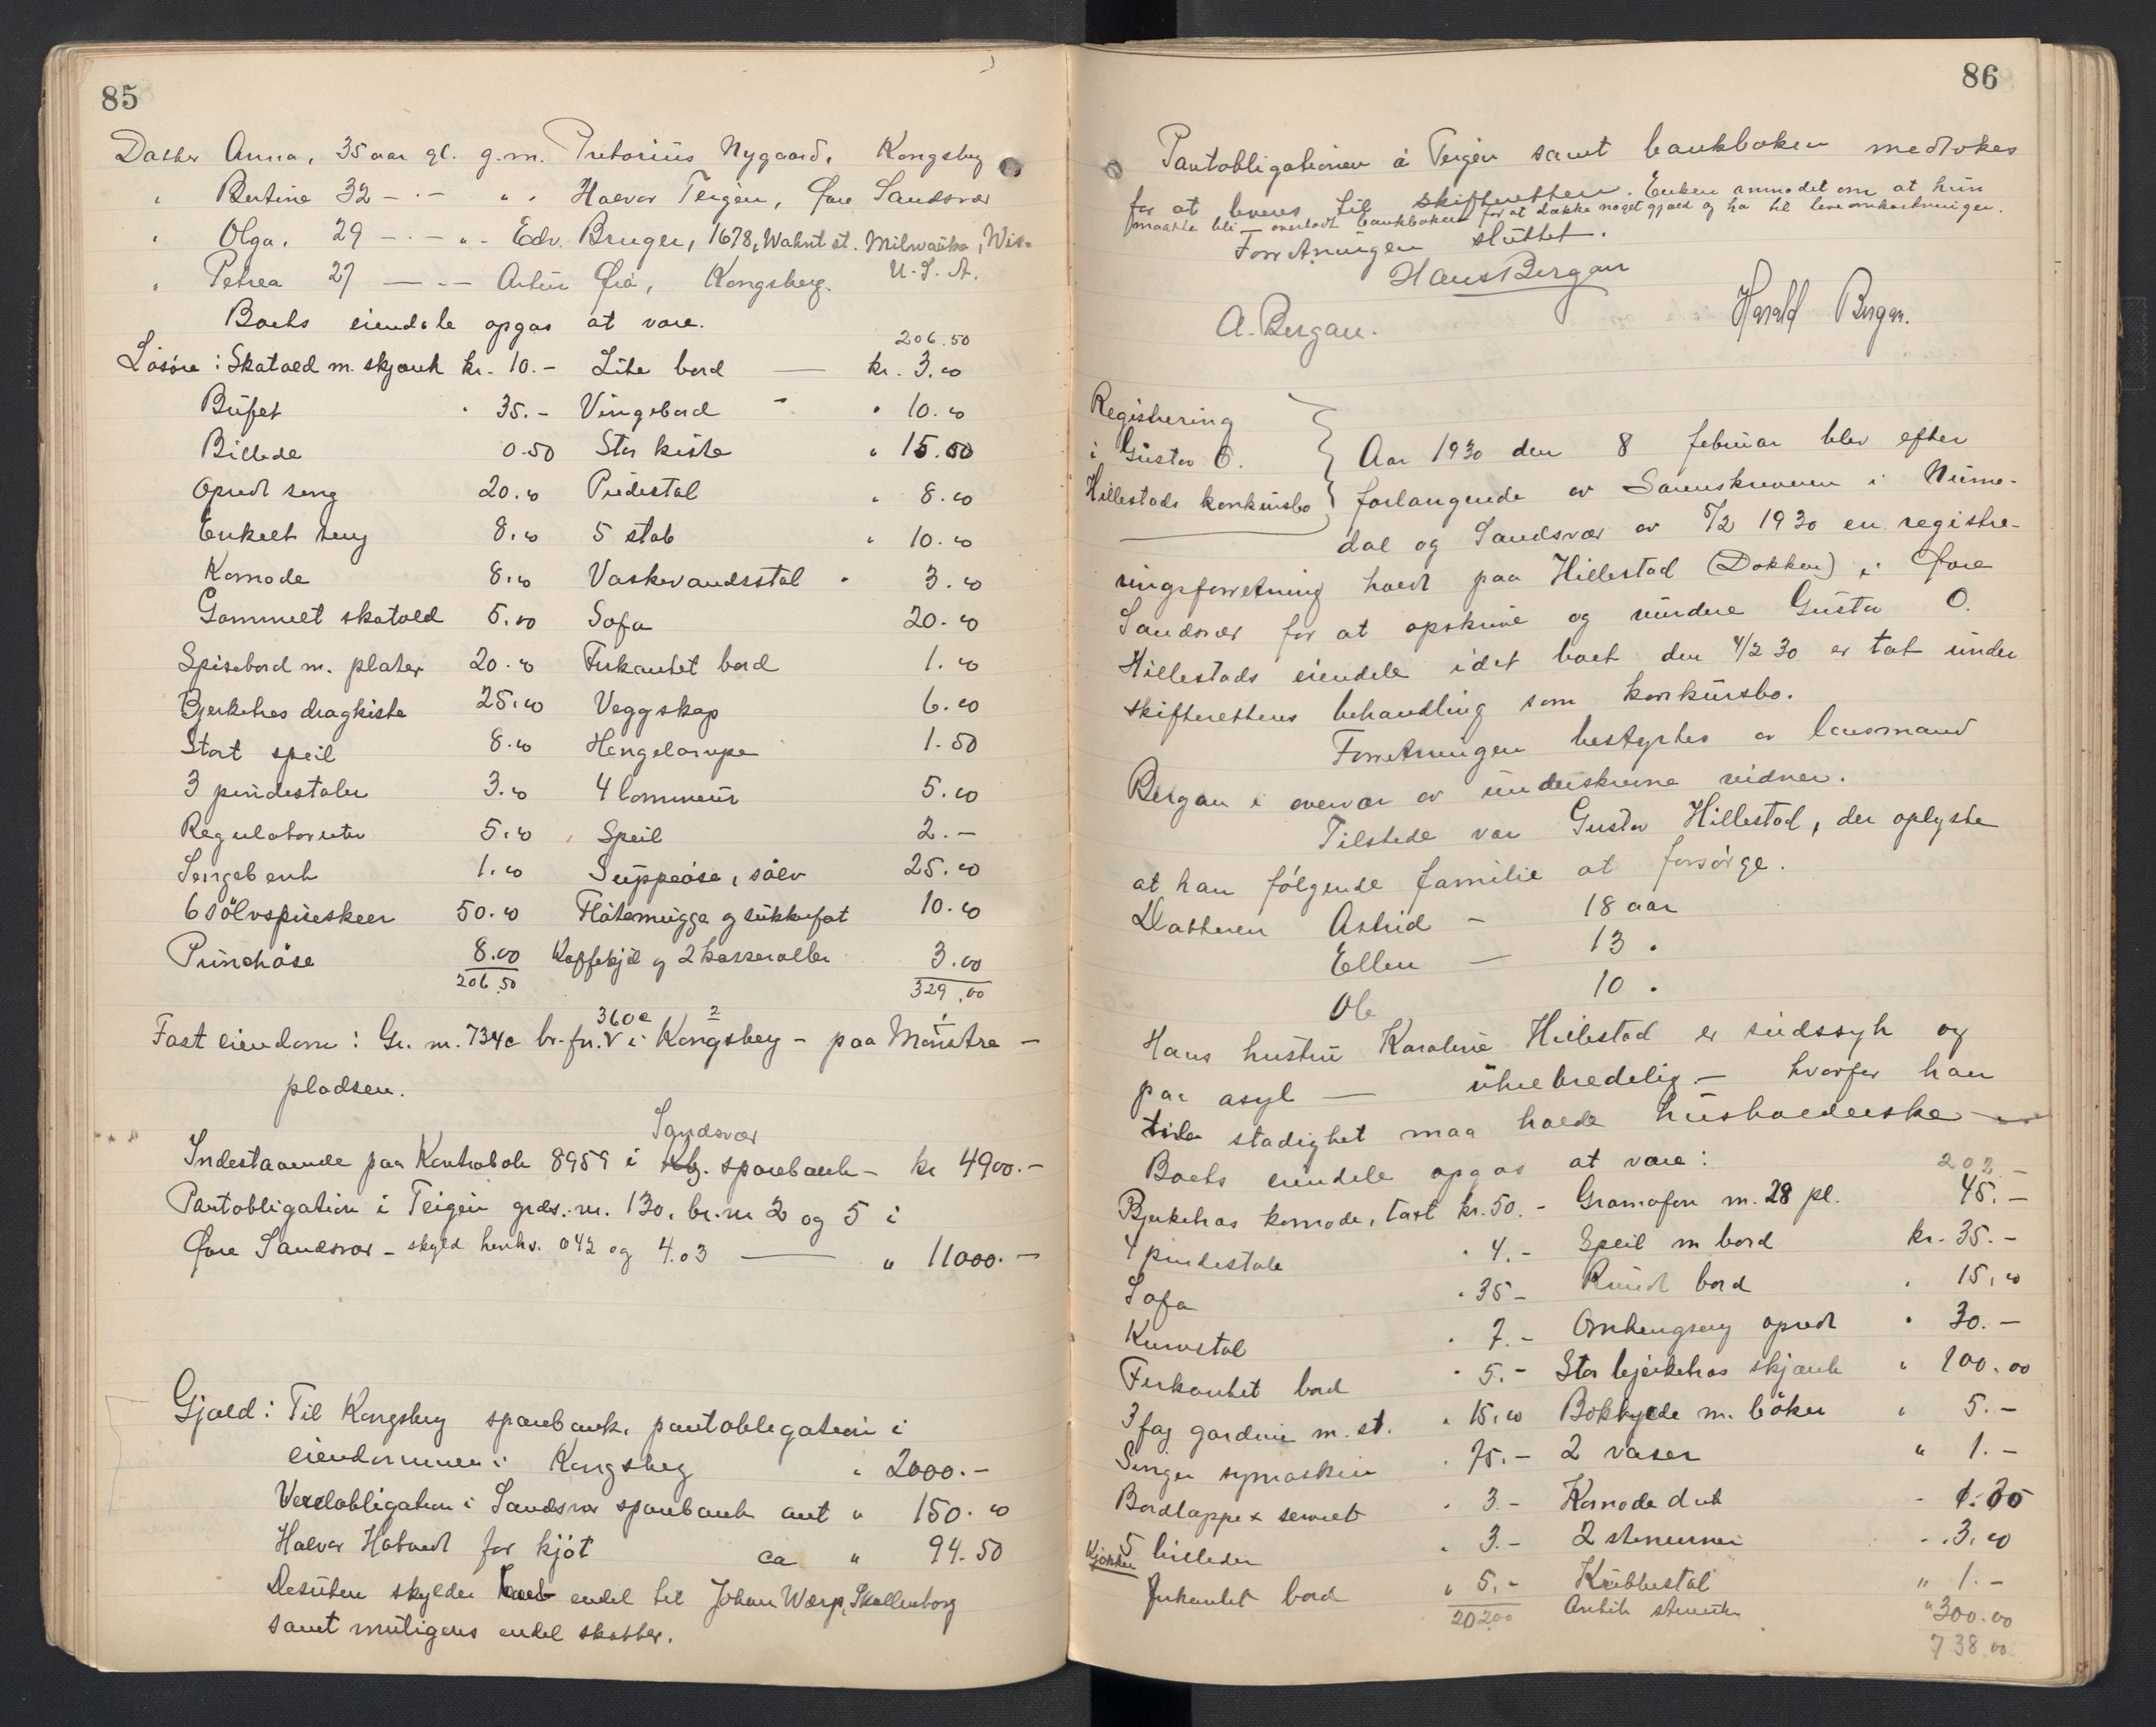 85
Datter Anna, 35 aar gl. g.m. Pretorius Nygaard, Kongsberg
" Bertine 32 - " - " " Halvor Teigen, Øvre Sandsvær
" Olga, 29 - " - " - Edv. Bruger, 1678, Walnut st. Milwauke, Wis.
U.S.A.
" Petrea 27 - - - Artur Bergan, Kongsberg.
Boets eiendele opgas at være.
206.50
Løsøre: Skatold m. skjænk kr. 10.- Lite bord — kr. 3.00
Bufet " 35.- Vingebord " " 10.00
Billede 0.50 Stor kiste " 15.00
Opredt seng 20.00 Piedestal " 8.00
Enkelt seng 8.00 5 stab " 10.00
Komode 8.00 Vaskevandsstol " 3.00
Gammelt skatold 5.00 Sofa 20.00
Spisebord m. plater 20.00 Firkantet bord 1.00
Bjerketræs dragkiste 25.00 Veggskap 6.00
Stort speil 8.00 Hengelampe 1.50
3 pindestoler 3.00 4 lommeur 5.00
Regulatorur 5.00 Speil 2.-
Sengebenk 1.00 Suppeøse, sølv 25.00
6 sølvspiseskeer 50.00 Fløtemugge og sukkerfat 10.00
Punchøse 8.00 Kaffekjel og 2 kasseroller 3.00
206.50 329.00
360e 2
Fast eiendom: Gr. nr. 734c br. fnr. V i Kongsberg - paa Mønstre-
pladsen.
Sandsvær
Indestaaende paa Kontrabok 8959 i Kbg. sparebank - kr 4900.-
Pantobligation i Teigen grds. nr. 130, br. nr 2 og 5 i
Øvre Sandsvær - skyld henhv. 042 og 4.03 — " 11000.-
Gjæld: Til Kongsberg sparebank, pantobligation i
eiendommen i Kongsberg " 2000.-
Vexelobligation i Sandsvær sparebank ant " 150.00
Halvor Hobæck for kjøt ca " 94.50
Desuten skylder boet endel til Johan Wærp, Skollenborg
samt muligens endel skatter.
86
Pantobligationen i Teigen samt bankboken medtokes
for at leveres til skifteretten. Enken anmodet om at hun
maatte bli overlatt bankboken for at dække noget gjæld og ha til leveomkostninger.
Forretningen sluttet.
Hans Bergan
A. Bergan. Harald Bergan.
Registrering
i Gustav O.
Hillestads konkursbo
Aar 1930 den 8 februar blev efter
forlangende av Sorenskriveren i Nume-
dal og Sandsvær av 5/2 1930 en registre-
ringsforretning holdt paa Hillestad (Dokken) i Øvre
Sandsvær for at opskrive og vurdere Gustav O.
Hillestads eiendele idet boet den 4/2 30 er tat under
skifterettens behandling som konkursbo.
Forretningen bestyrtes av lensmand
Bergan i overvær av underskrevne vidner.
Tilstede var Gustav Hillestad, der oplyste
at han følgende familie at forsørge.
Datteren Astrid - 18 aar
Ellen — 13 "
Ole 10 "
Hans hustru Karoline Hillestad er sindssyk og
paa asyl — uhelbredelig - hvorfor han
til stadighet maa holde husholderske —
Boets eiendele opgas at være: 202.-
Bjerketræs komode, takst kr. 50.- Gramofon m. 28 pl. 45.-
4 pindestole " 4.- Speil m bord kr. 35.-
Sofa " 35- Rundt bord " 15.00
Kurvstol " 7.- Omhengseng opredt " 30.-
Firkantet bord " 5.- Stor bjerketræs skjænk " 100.00
3 fag gardiner m. st. " 15.00 Bokhylde m. bøker " 5.-
Singer symaskin " 75.- 2 vaser " 1.-
Bordlappe + serviet " 3.- Komode duk -
5 billeder " 3.- 2 3.00
Kjøkken
Firkantet bord " 5.- Krubbestol " 1.-
20200 Antik " 300.00
738.00